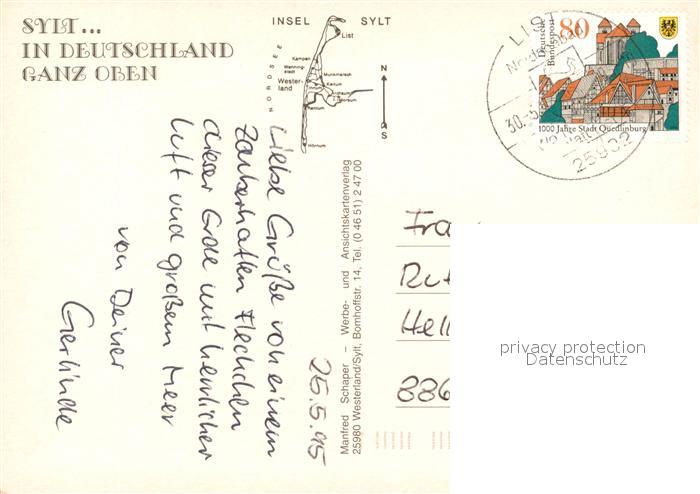 SYLT...
IN DEUTSCHLAND
GANZ OBEN
INSEL SYLT
NORDSEE
List
Kampen
Wenning-
stedt
Wester-
land
Munkmarsch
Keitum
Morsum
Rantum
Hörnum
N
S
80
Deutsche
Bundespost
1000 Jahre Stadt Quedlinburg
LIST
30.-5.
25992
25.5.95
Liebe Grüße von einem
zauberhaften Fleckchen
dieser Erde mit herrlicher
Luft und großem Meer
von Deiner
Gerlinde
Manfred Schaper – Werbe- und Ansichtskartenverlag
25980 Westerland/Sylt, Bomhoffstr. 14, Tel. (0 46 51) 2 47 00
Fra
Rut
Hell
886
privacy protection
Datenschutz